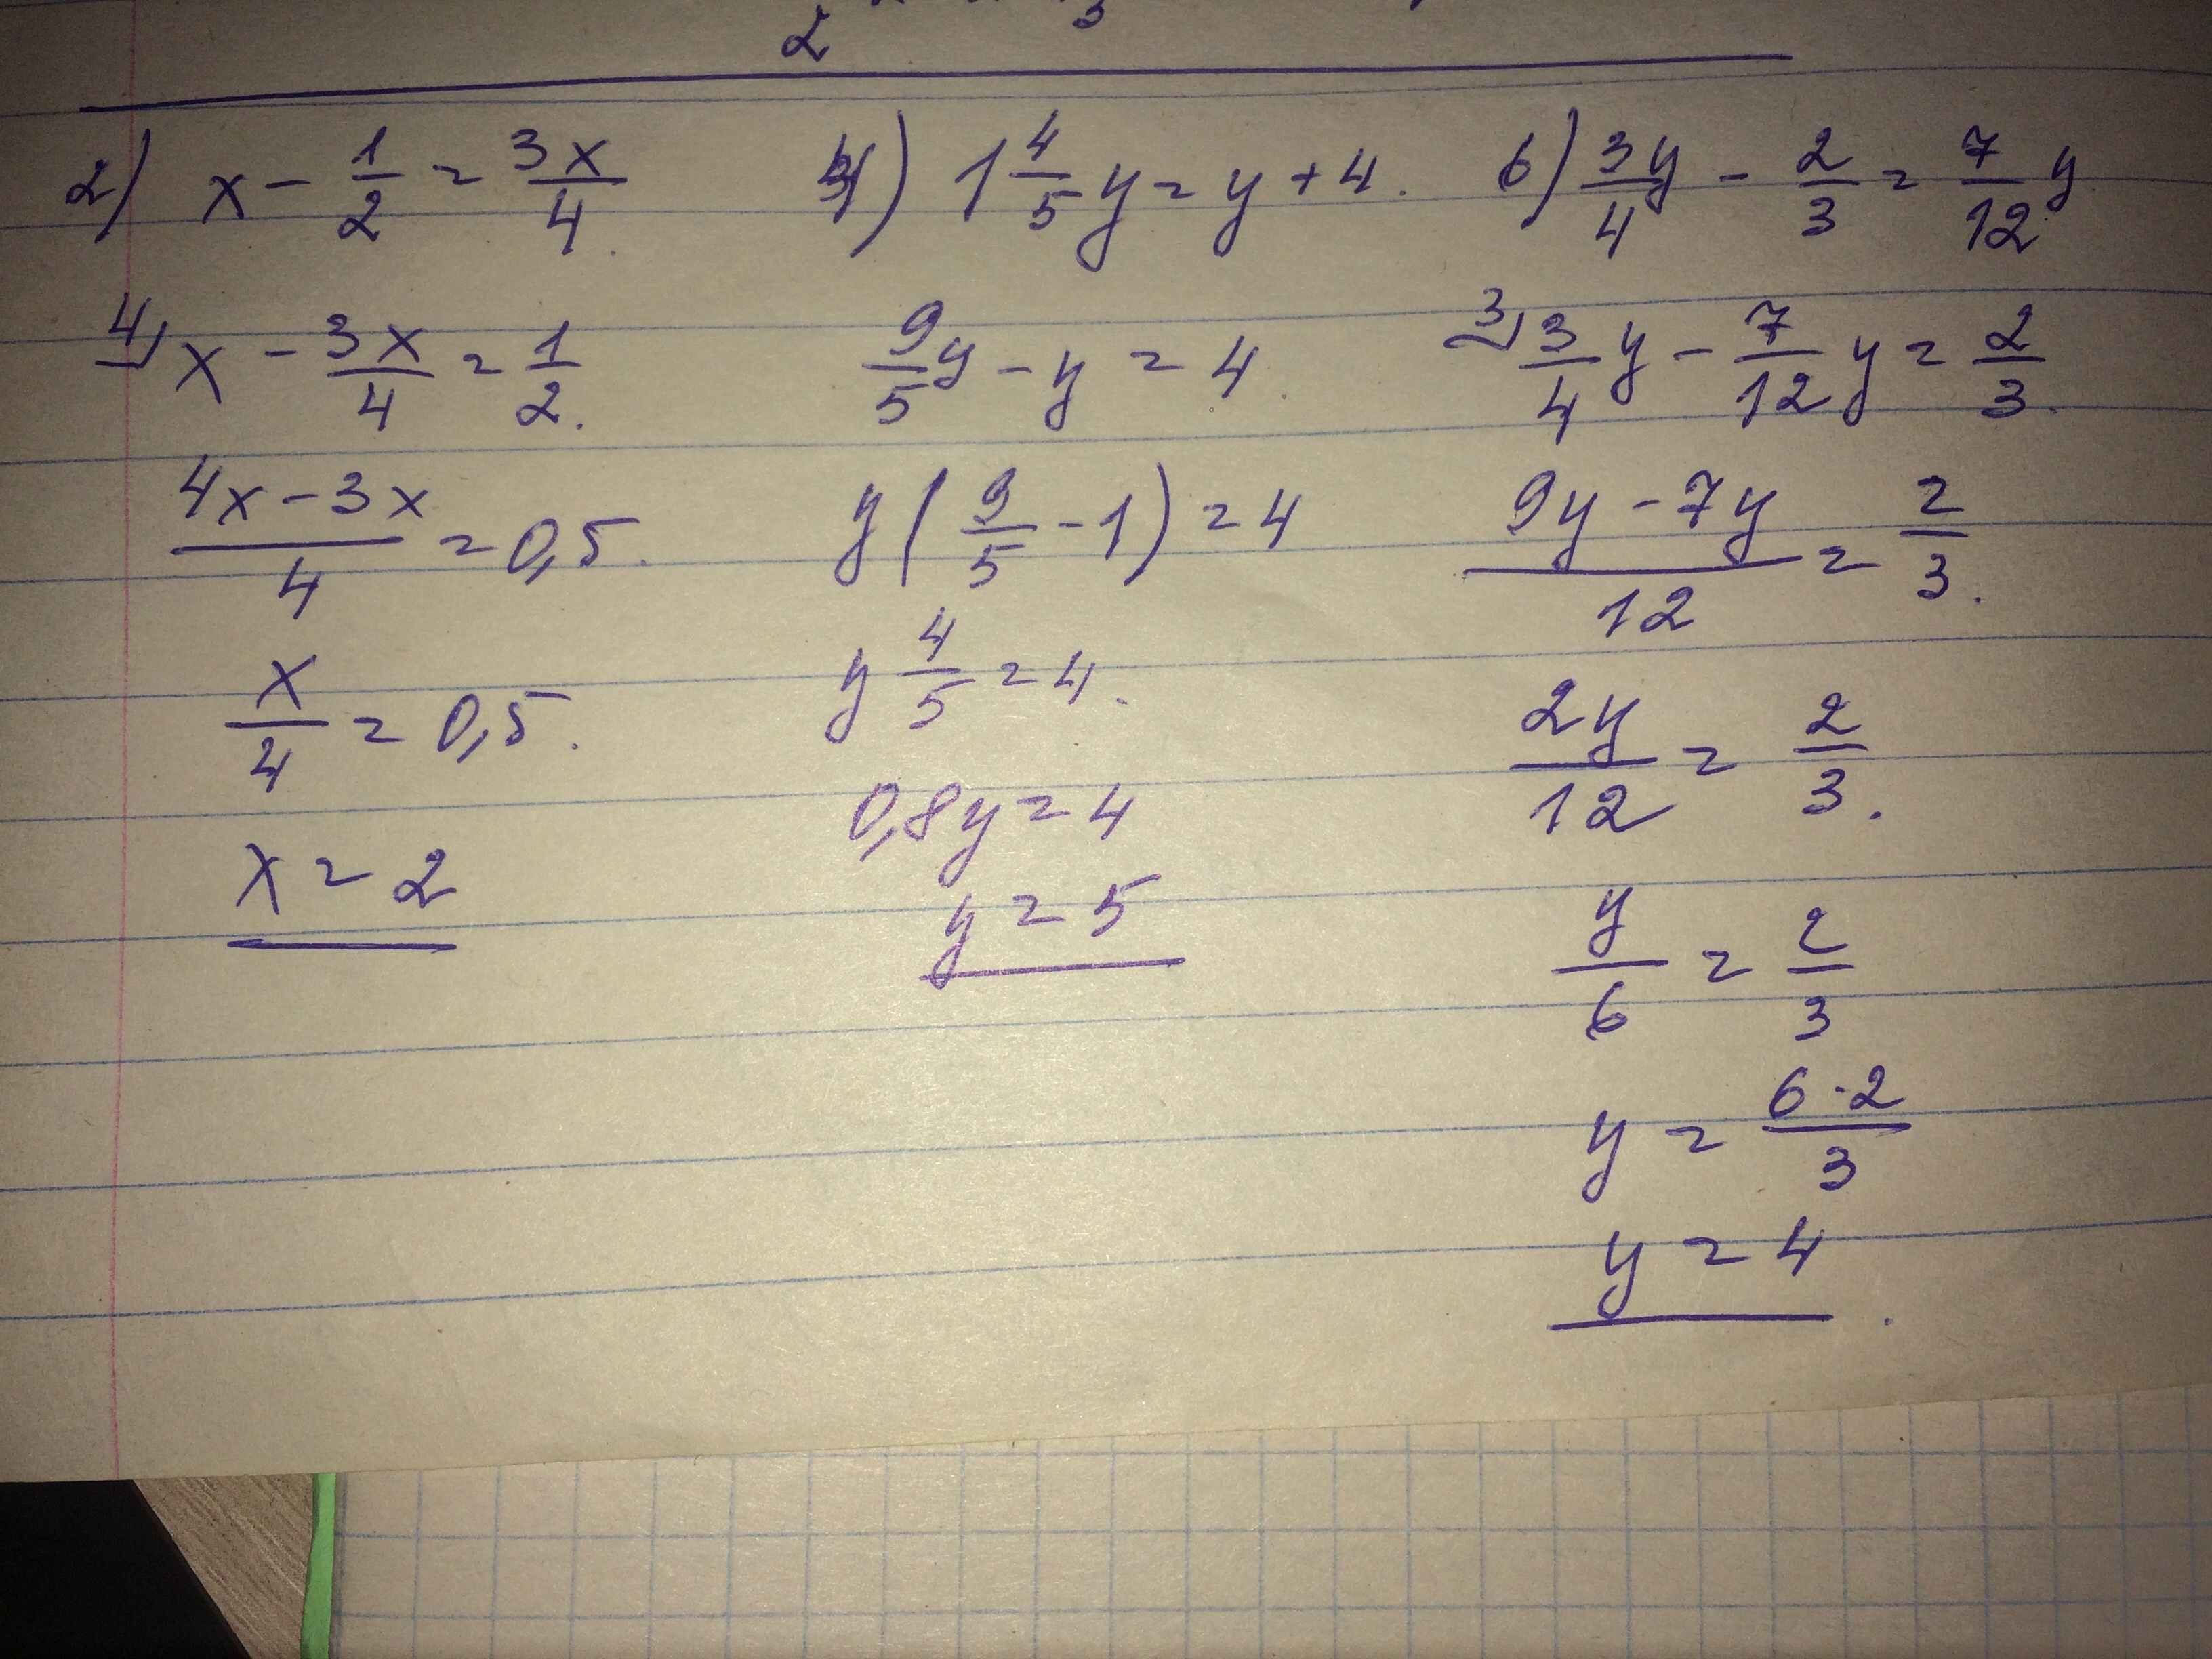 2) x - 1/2 = 3x/4.
4) x - 3x/4 = 1/2.
(4x - 3x)/4 = 0,5.
x/4 = 0,5.
x = 2
4) 1 4/5 y = y + 4.
9/5 y - y = 4.
y(9/5 - 1) = 4
y 4/5 = 4.
0,8y = 4
y = 5
6) 3y/4 - 2/3 = 7/12 y
3) 3/4 y - 7/12 y = 2/3.
(9y - 7y)/12 = 2/3.
2y/12 = 2/3.
y/6 = 2/3
y = (6·2)/3
y = 4.